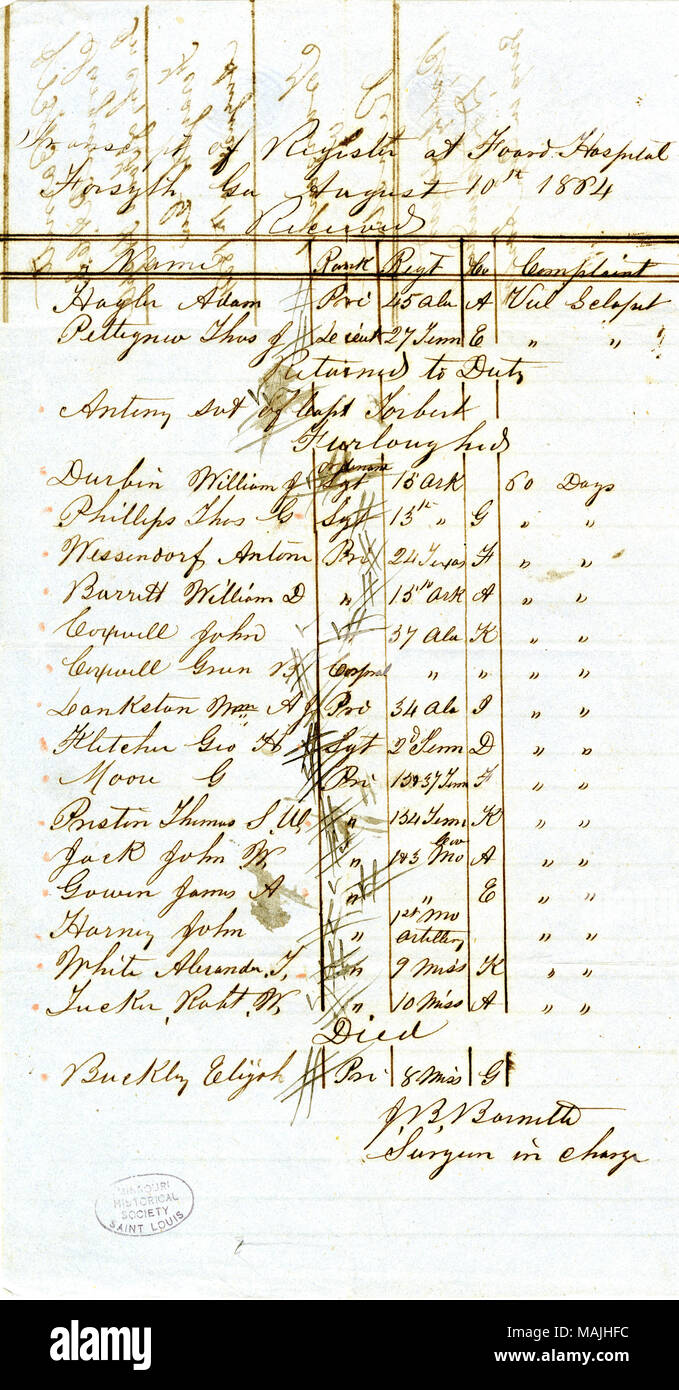 Transcript of Register at Foard Hospital
Forsyth Ga August 10th 1864
Received
Name Rank Regt Co Complaint
Hagler Adam Pri 45 Ala A Vul Sclopet
Pettigrew Thos J Lieut 27 Tenn E " "
Returned to Duty
Anteny svt of Capt Torbert
Furloughed
Durbin William J Ordinance Sgt 15 Ark 60 Days
Phillips Thos G Sgt 13th " G " "
Wessendorf Antone Pri 24 Texas F " "
Barritt William D " 15th Ark A " "
Coxwill John 37 Ala K " "
Coxwill Green B Corporal " " " "
Lankston Wm A J Pri 34 Ala I " "
Fletcher Geo H Sgt 2d Tenn D " "
Moore G Pri 13&37 Tenn F " "
Preston Thomas S. W. " 154 Tenn K " "
Jack John W. " 1&3 Cav Mo A " "
Gowen James A " " E " "
Harney John " 1st Mo Artillery " "
White Alexander T. " 9 Miss K " "
Tucker, Robt. W. " 10 Miss A " "
Died
Buckley Elijah Pri 8 Miss G
J. B. Barnette
Surgeon in charge
MISSOURI
HISTORICAL
SOCIETY
SAINT LOUIS
alamy
Image ID: MAJHFC
www.alamy.com